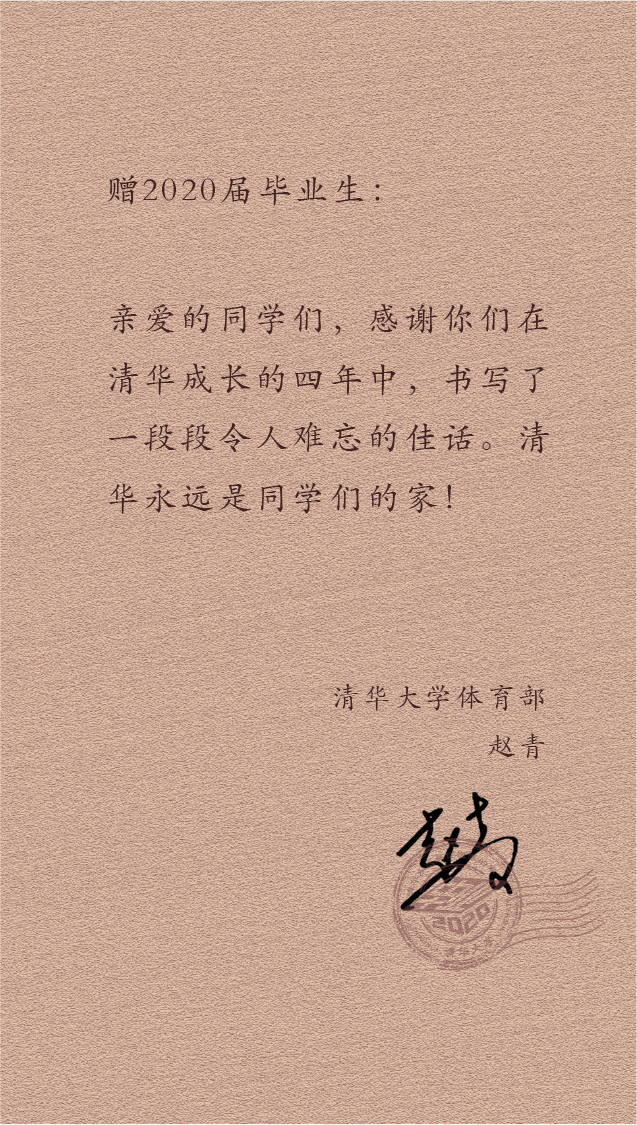 赠2020届毕业生：
亲爱的同学们，感谢你们在
清华成长的四年中，书写了
一段段令人难忘的佳话。清
华永远是同学们的家！
清华大学体育部
赵青
赵青
2020
清华大学